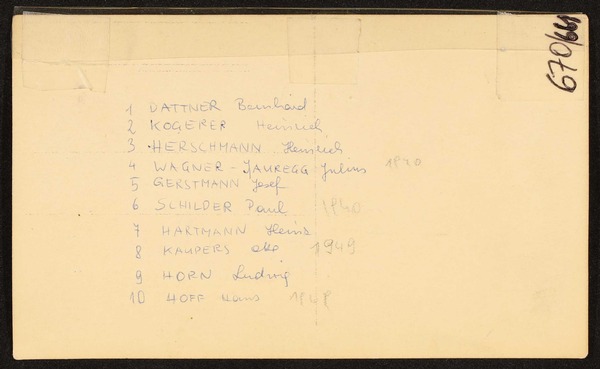 670/661
1 DATTNER Bernhard
2 KOGERER Heinrich
3 HERSCHMANN Heinrich
4 WAGNER-JAUREGG Julius 1940
5 GERSTMANN Josef
6 SCHILDER Paul 1940
7 HARTMANN Heinz
8 KAUPERS Otto 1949
9 HORN Ludwig
10 HOFF Hans